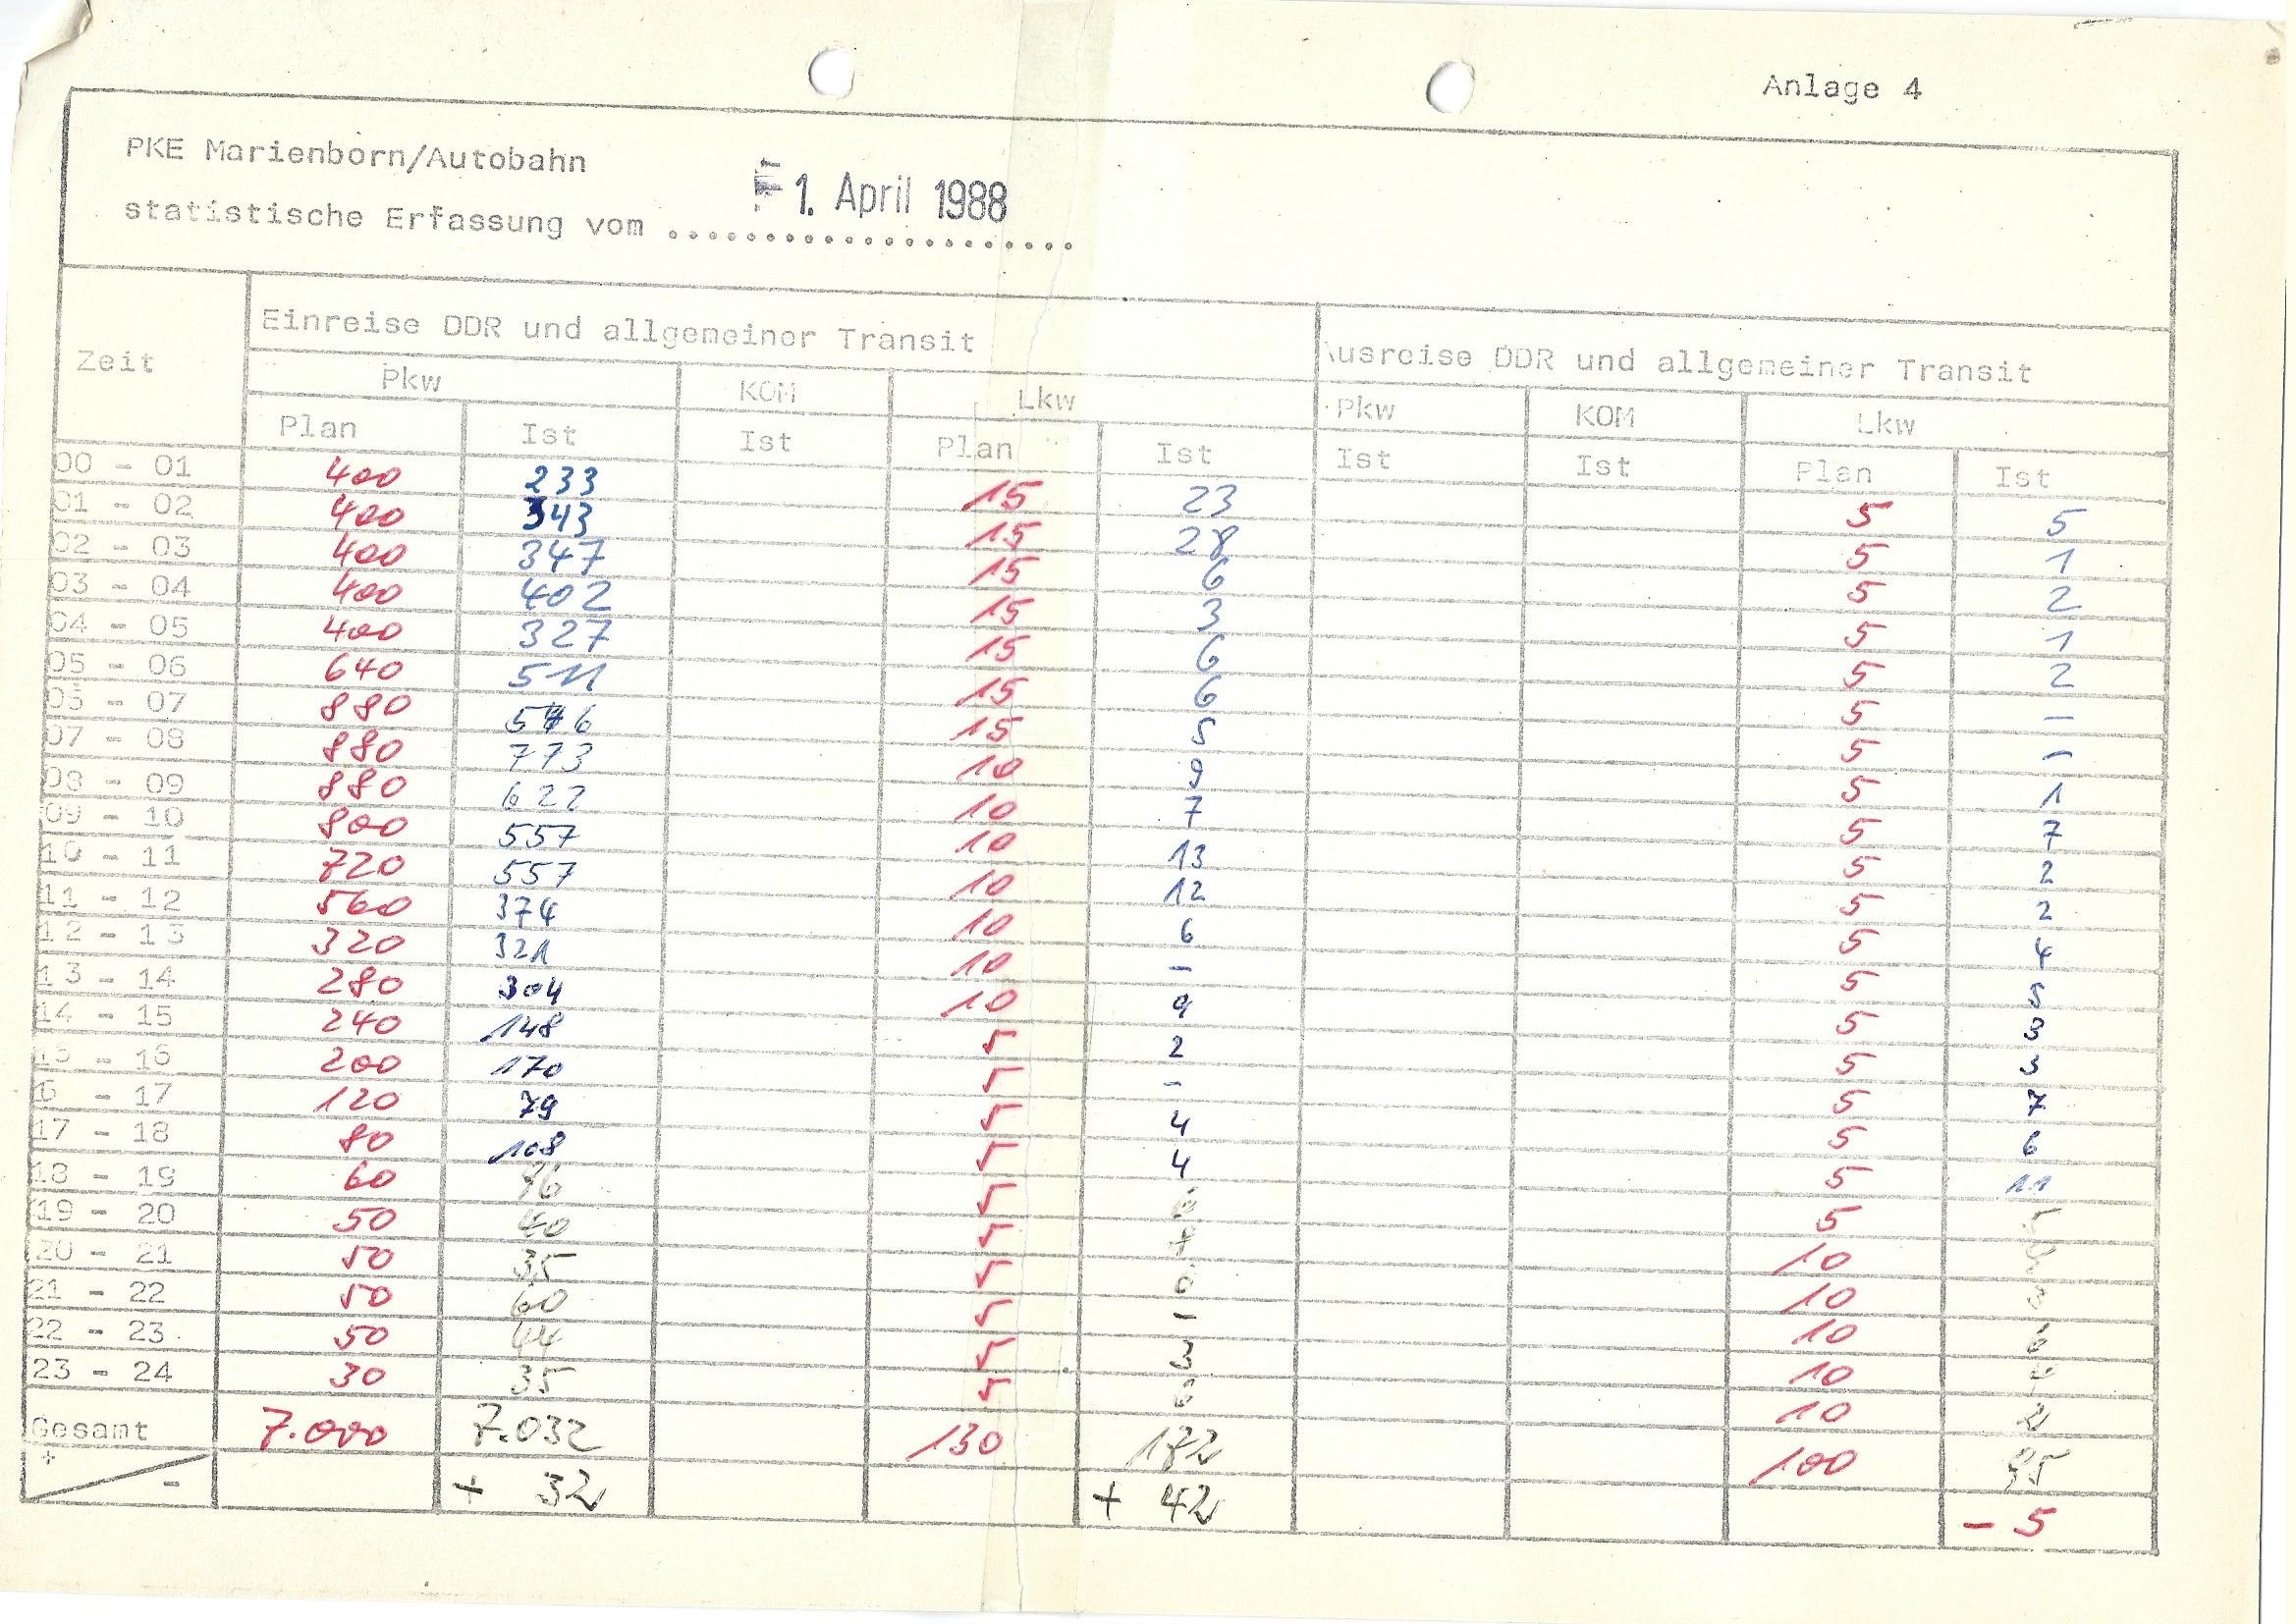 Anlage 4
PKE Marienborn/Autobahn
statistische Erfassung vom 1. April 1988
Zeit Einreise DDR und allgemeiner Transit Ausreise DDR und allgemeiner Transit
Pkw KOM Lkw Pkw KOM Lkw
Plan Ist Ist Plan Ist Ist Ist Plan Ist
00 - 01 400 233 15 23 5 5
01 - 02 400 343 15 28 5 1
02 - 03 400 347 15 6 5 2
03 - 04 400 402 15 3 5 1
04 - 05 400 327 15 6 5 2
05 - 06 640 511 15 6 5 -
06 - 07 880 15 5 5 -
07 - 08 880 773 10 9 5 1
08 - 09 880 622 10 7 5 7
09 - 10 800 557 10 13 5 2
10 - 11 720 557 10 12 5 2
11 - 12 560 374 10 6 5 4
12 - 13 320 321 10 - 5 5
13 - 14 280 304 10 9 5 3
14 - 15 240 148 5 2 5 3
15 - 16 200 170 5 - 5 7
16 - 17 120 79 5 4 5 6
17 - 18 80 108 5 4 5 11
18 - 19 60 5 6 5
19 - 20 50 40 5 10
20 - 21 50 35 5 6 10
21 - 22 50 60 5 - 10 6
22 - 23 50 44 5 3 10
23 - 24 30 35 5 6 10
Gesamt 7.000 7.032 130 172 100 95
+ - + 32 + 42 - 5